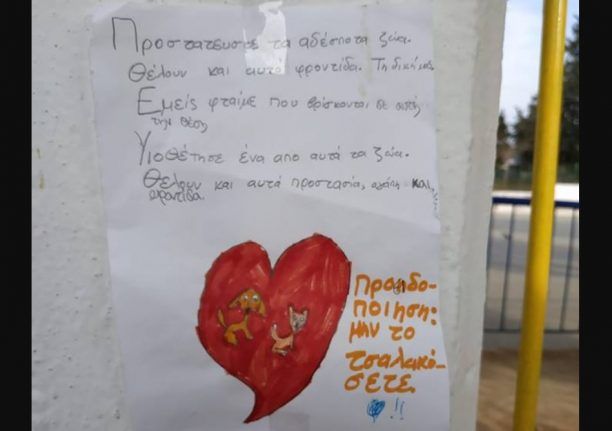 Προστατευσε τα αδέσποτα ζώα.
Θέλουν και αυτα φροντίδα. Τη δική μας.
Εμείς φταίμε που βρίσκονται σε αυτή
την θέση
Υιοθέτησε ένα απο αυτα τα ζώα.
Θέλουν και αυτά προστασία, αγάπη και
φροντίδα.
Προηδο-
ποίηση:
μην το
τσαλακό-
σετε.
!!